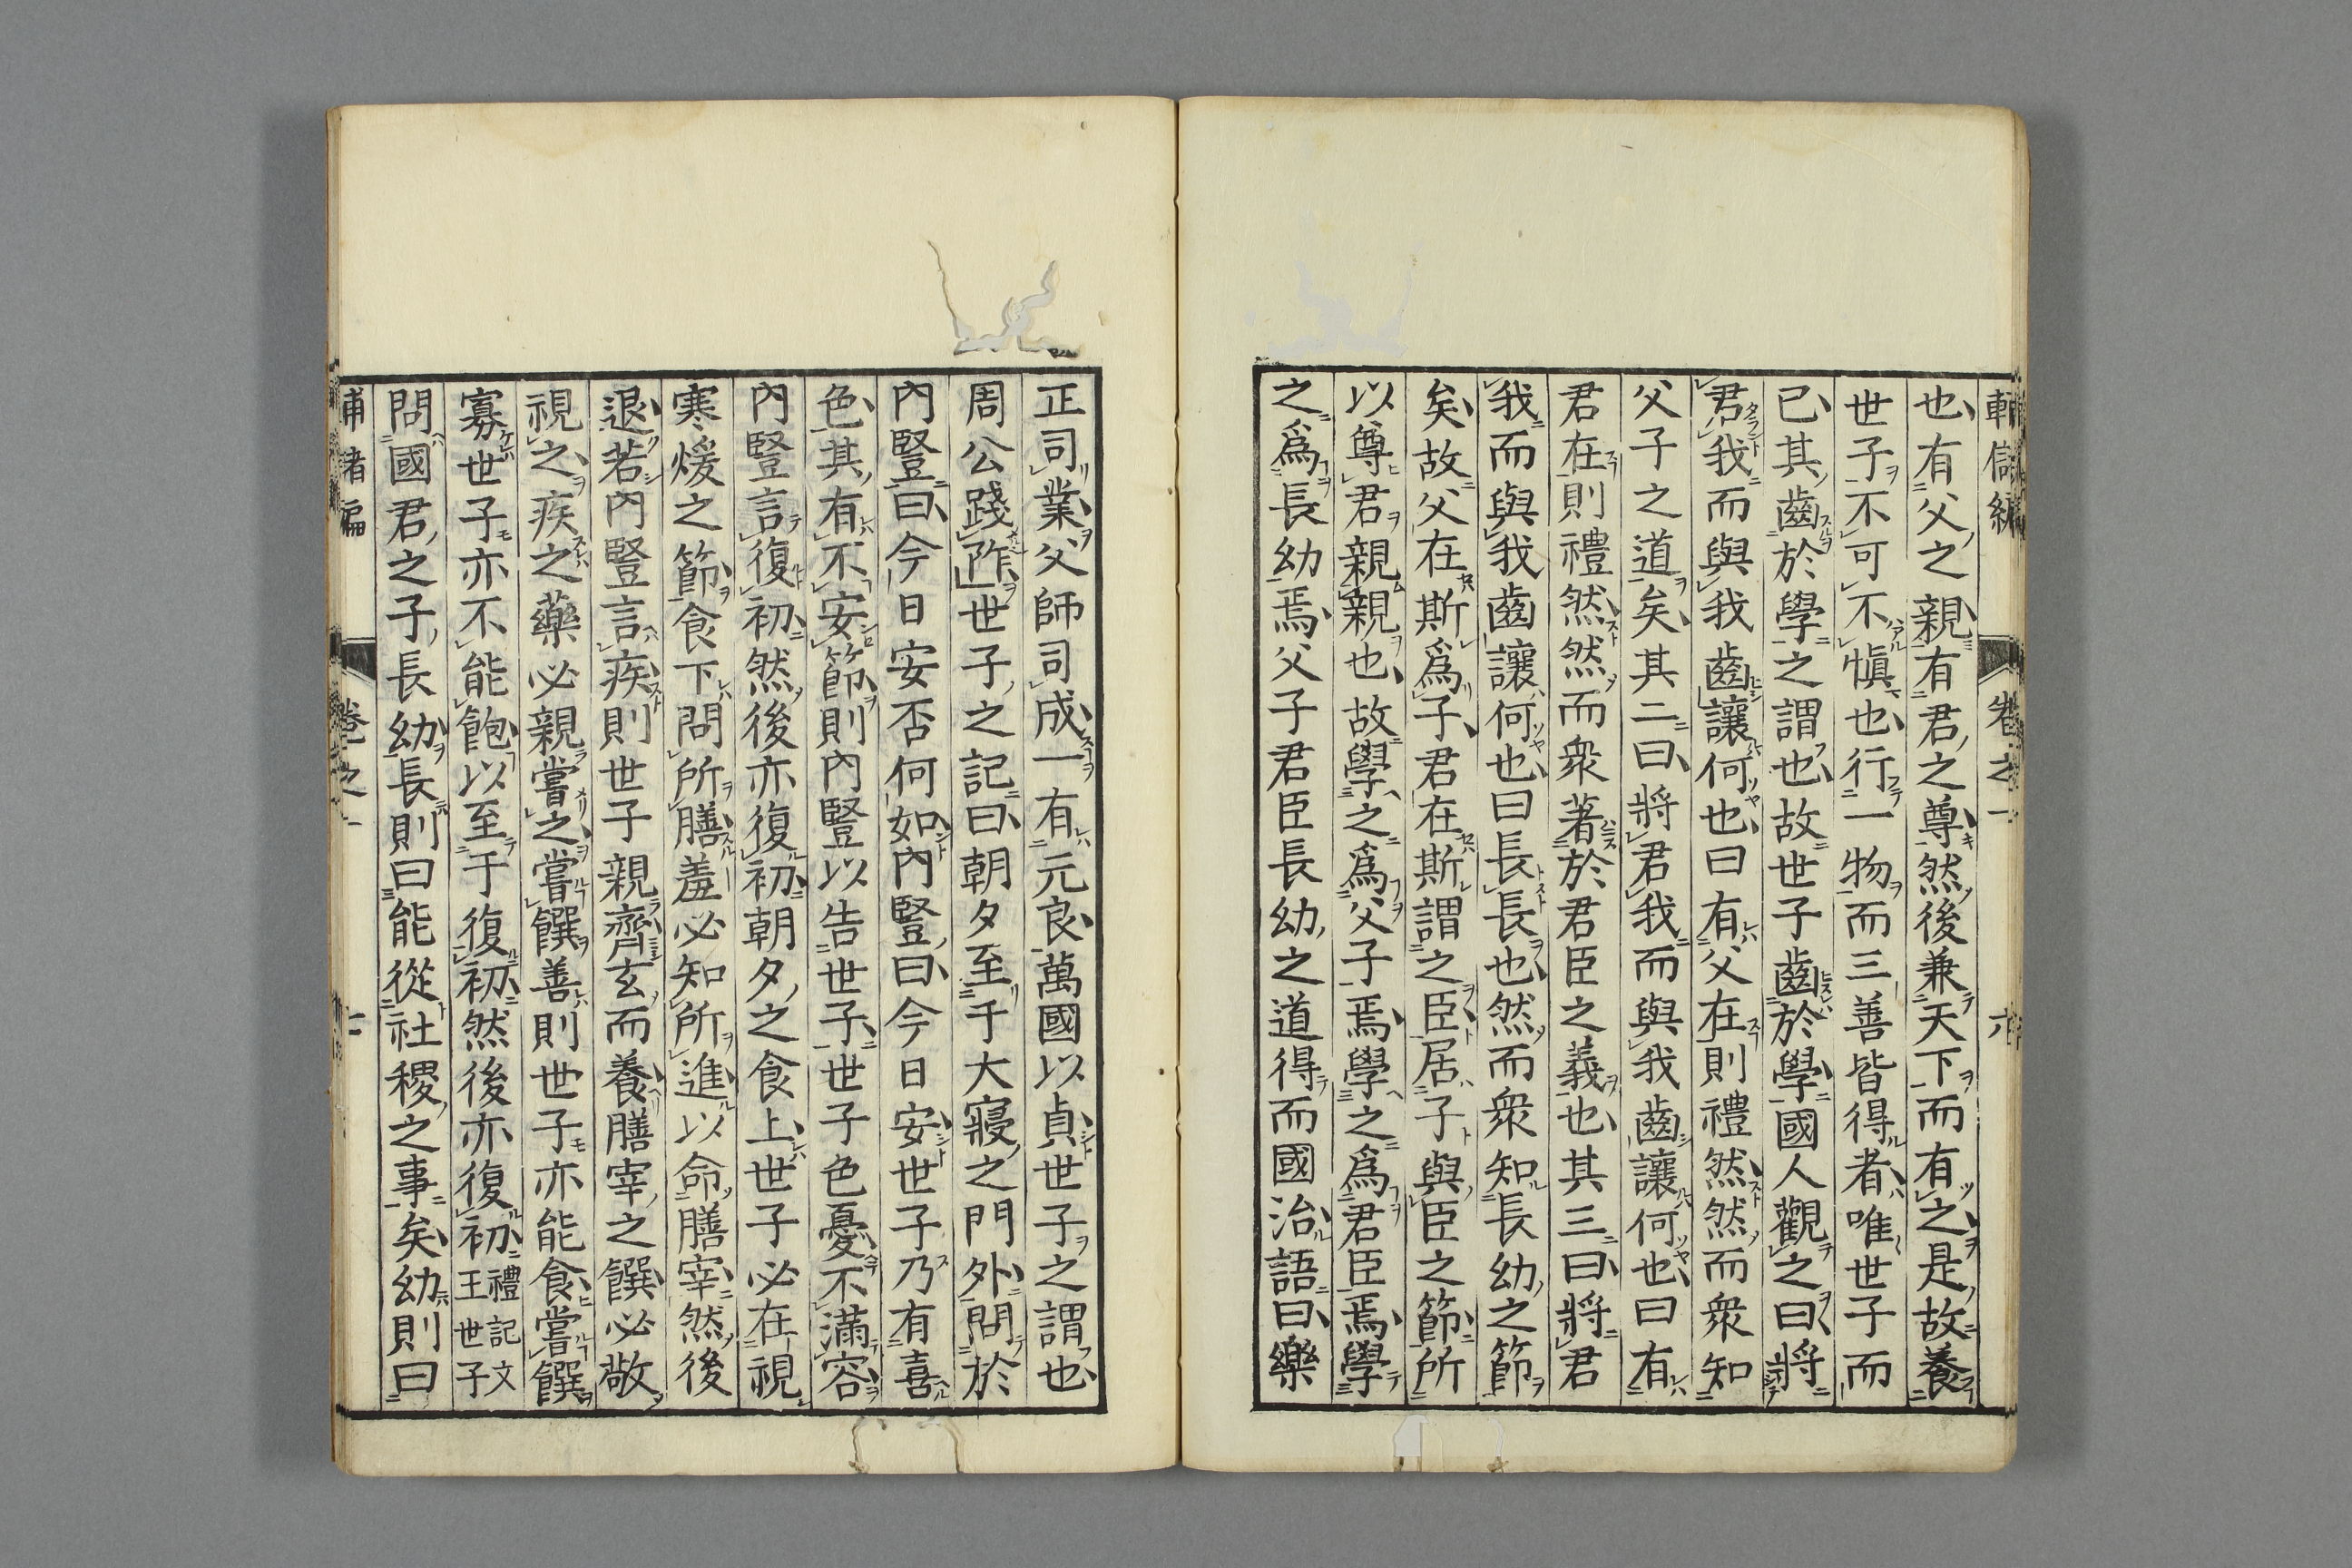 也有父之親有君之尊然後兼天下而有之是故養
世子不可不愼也行一物而三善皆得者唯世子而
已其齒於學之謂也故世子齒於學國人觀之曰將
君我而與我齒讓何也曰有父在則禮然然而衆知
父子之道矣其二曰將君我而與我齒讓何也曰有
君在則禮然然而衆著於君臣之義也其三曰將君
我而與我齒讓何也曰長長也然而衆知長幼之節
矣故父在斯爲子君在斯謂之臣居子與臣之節所
以尊君親親也故學之爲父子焉學之爲君臣焉學
之爲長幼焉父子君臣長幼之道得而國治語曰樂
正司業父師司成一有元良萬國以貞世子之謂也
周公踐阼世子之記曰朝夕至于大寢之門外問於
內豎曰今日安否何如內豎曰今日安世子乃有喜
色其有不安節則內豎以告世子世子色憂不滿容
內豎言復初然後亦復初朝夕之食上世子必在視
寒煖之節食下問所膳羞必知所進以命膳宰然後
退若內豎言疾則世子親齊玄而養膳宰之饌必敬
視之疾之藥必親嘗之嘗饌善則世子亦能食嘗饌
寡世子亦不能飽以至于復初然後亦復初禮記文王世子
問國君之子長幼長則曰能從社稷之事矣幼則曰
卷之一